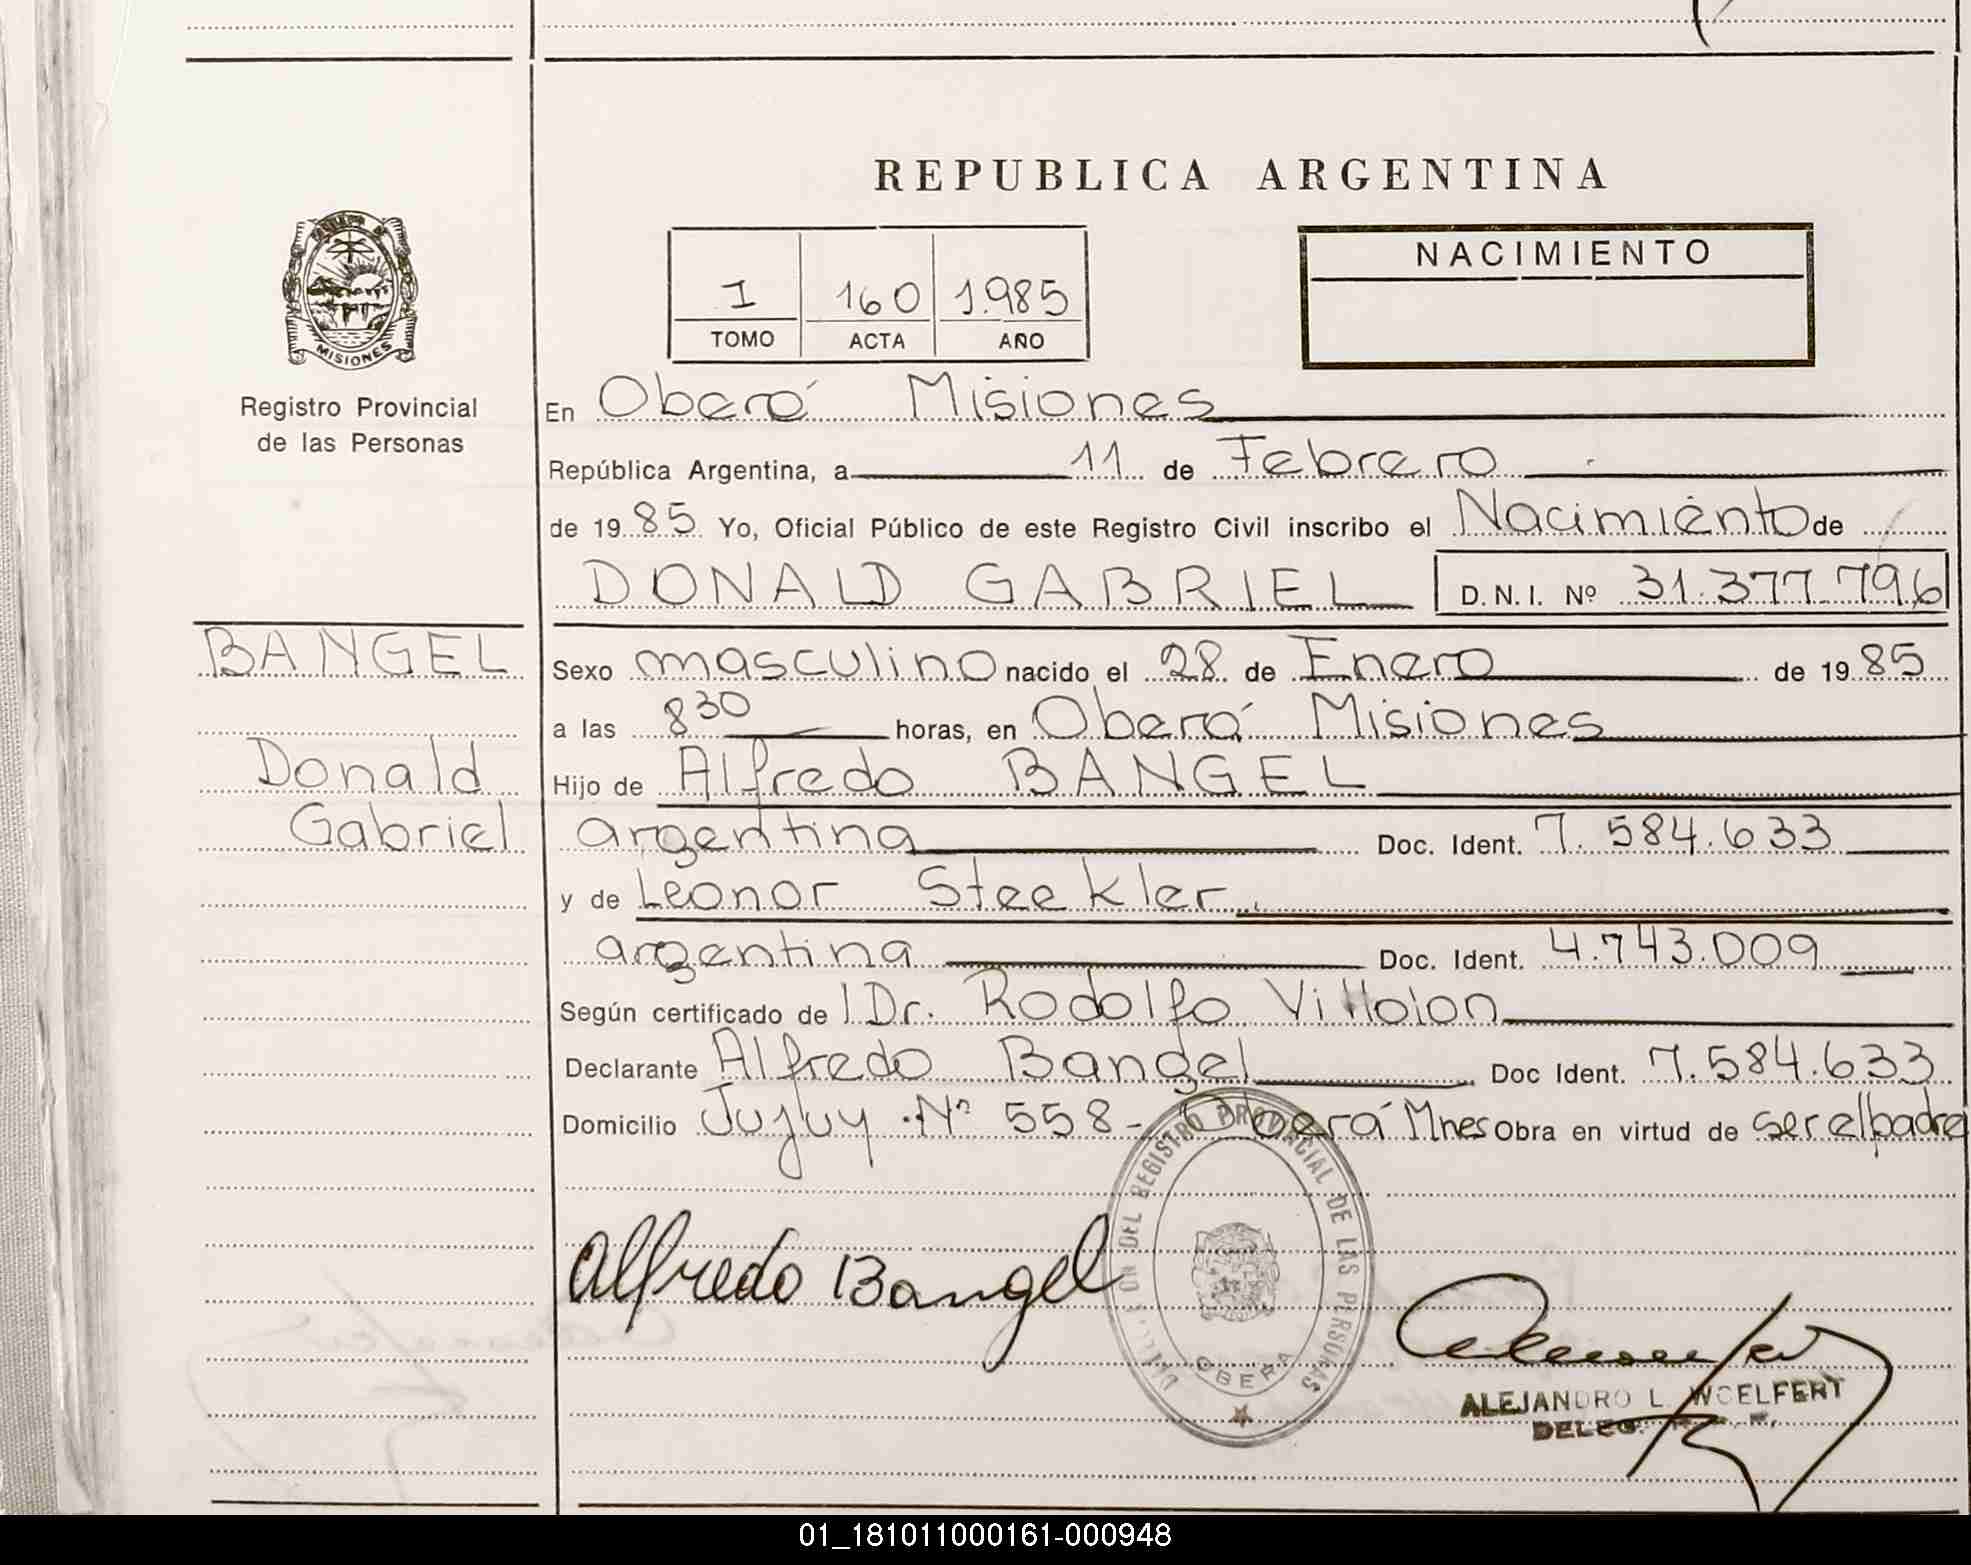 REPUBLICA ARGENTINA
MISIONES
Registro Provincial
de las Personas
I 160 1.985
TOMO ACTA AÑO
NACIMIENTO
En Oberá Misiones
República Argentina, a 11 de Febrero
de 19 85 Yo, Oficial Público de este Registro Civil inscribo el Nacimiento de
DONALD GABRIEL D.N.I. Nº 31.377.796
BANGEL
Donald
Gabriel
Sexo masculino nacido el 28 de Enero de 19 85
a las 8 30 horas, en Oberá Misiones
Hijo de Alfredo BANGEL
argentina Doc. Ident. 7.584.633
y de Leonor Steekler
argentina Doc. Ident. 4.743.009
Según certificado de l Dr. Rodolfo
Declarante Alfredo Bangel Doc Ident. 7.584.633
Domicilio Jujuy Nº 558 - Oberá Mnes Obra en virtud de ser el padre
DEL REGISTRO PROVINCIAL DE LAS PERSONAS
OBERA
Alfredo Bangel
ALEJANDRO L. WOELFERT
DELEG.
01_181011000161-000948